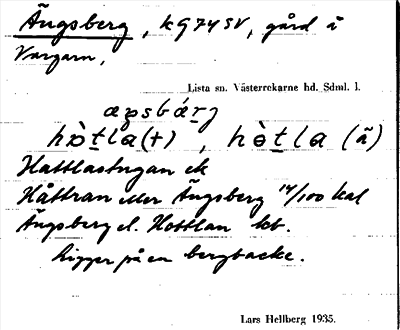 Ängsberg, KG74SV, gård å
Vargarn,
Lista sn. Västerrekarne hd. Sdml. l.
hòt̠la (+), hòt̠la (ä)
Hattlastugan ek
Håttran eller Ängsberg 14/100 kal
Ängsberg el. Hottlan kb.
Ligger på en bergbacke.
Lars Hellberg 1935.